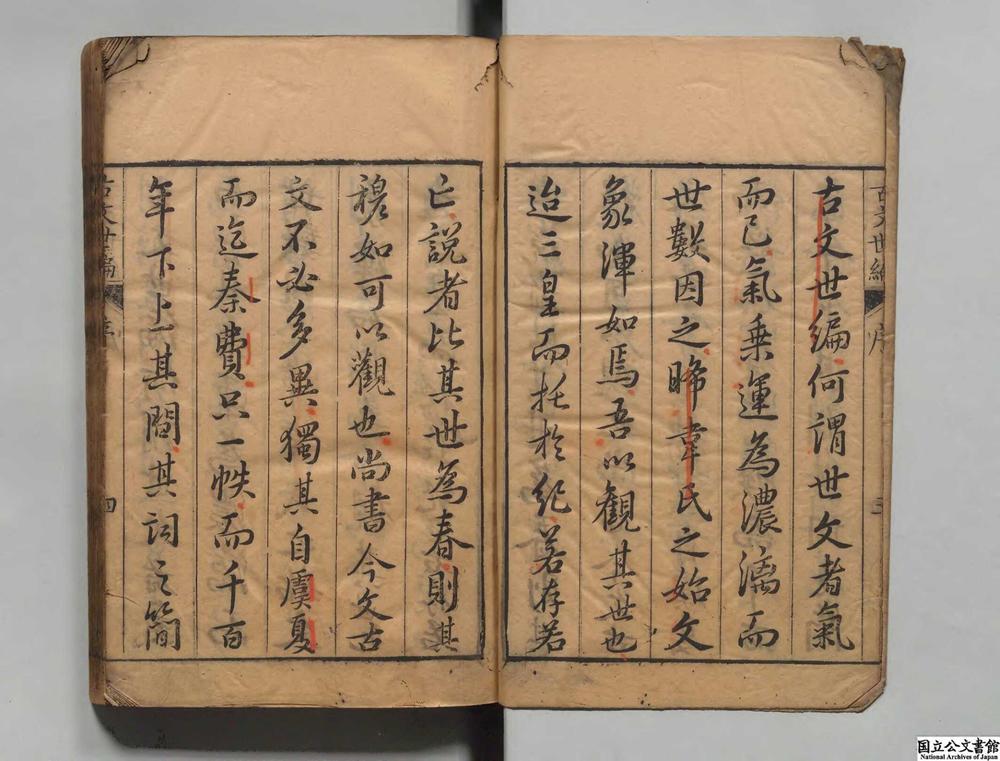 古文世編何謂世文者氣
而已氣乗運為濃漓而
世數因之睎韋民之始文
象渾如焉吾以觀其世也
迨三皇而托於紀若存若
亡說者比其世為春則其
穆如可以觀也尚書今文古
文不必多異獨其自虞夏
而迄秦費只一帙而千百
年下上其間其詞之簡
古文世編
序
三
古文世編
序
四
国立公文書館
National Archives of Japan